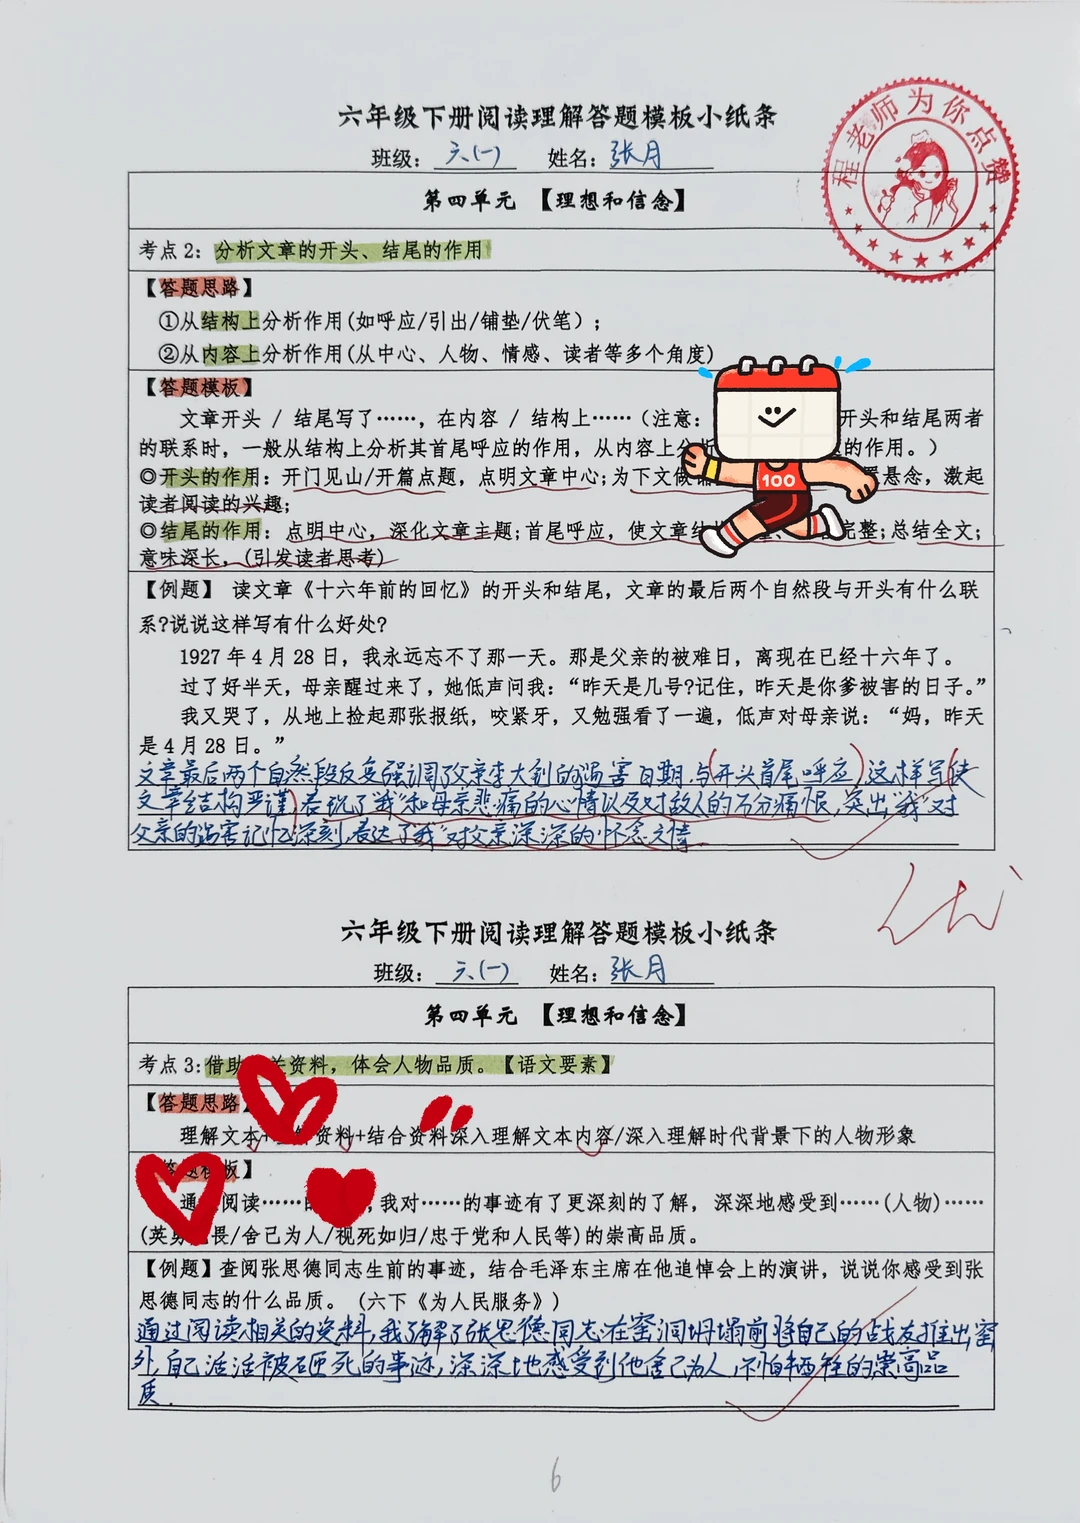 六年级下册阅读理解答题模板小纸条
程老师为你点赞
班级：六(一) 姓名：张月
第四单元 【理想和信念】
考点2：分析文章的开头、结尾的作用
【答题思路】
①从结构上分析作用(如呼应/引出/铺垫/伏笔)；
②从内容上分析作用(从中心、人物、情感、读者等多个角度)
【答题模板】
文章开头 / 结尾写了……，在内容 / 结构上……（注意： 开头和结尾两者
的联系时，一般从结构上分析其首尾呼应的作用，从内容上分 的作用。）
◎开头的作用：开门见山/开篇点题，点明文章中心;为下文做 悬念，激起
读者阅读的兴趣;
◎结尾的作用：点明中心，深化文章主题;首尾呼应，使文章结 完整;总结全文;
意味深长，(引发读者思考)
100
【例题】 读文章《十六年前的回忆》的开头和结尾，文章的最后两个自然段与开头有什么联
系?说说这样写有什么好处?
1927年4月28日，我永远忘不了那一天。那是父亲的被难日，离现在已经十六年了。
过了好半天，母亲醒过来了，她低声问我：“昨天是几号?记住，昨天是你爹被害的日子。”
我又哭了，从地上捡起那张报纸，咬紧牙，又勉强看了一遍，低声对母亲说：“妈，昨天
是4月28日。”
文章最后两个自然段反复强调了父亲李大钊的遇害日期,与(开头首尾呼应),这样写(使
文章结构严谨),表现了“我”和母亲悲痛的心情以及对敌人的万分痛恨,突出“我”对
父亲的遇害记忆深刻,表达了“我”对父亲深深的怀念之情.
优
六年级下册阅读理解答题模板小纸条
班级：六(一) 姓名：张月
第四单元 【理想和信念】
考点3:借助 关资料，体会人物品质。【语文要素】
【答题思路
理解文本+ 资料+结合资料深入理解文本内容/深入理解时代背景下的人物形象
板】
通 阅读…… ，我对……的事迹有了更深刻的了解，深深地感受到……(人物)……
(英 畏/舍己为人/视死如归/忠于党和人民等)的崇高品质。
【例题】查阅张思德同志生前的事迹，结合毛泽东主席在他追悼会上的演讲，说说你感受到张
思德同志的什么品质。（六下《为人民服务》）
通过阅读相关的资料,我了解了张思德同志在窑洞坍塌前将自己的战友推出窑
外,自己活活被砸死的事迹,深深地感受到他舍己为人,不怕牺牲的崇高品
质.
6